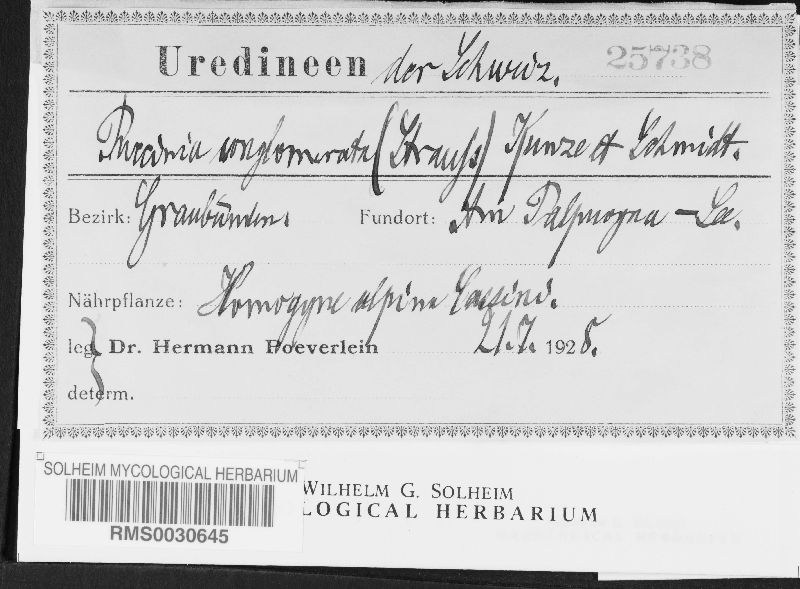 Uredineen der Schweiz. 25738
Puccinia conglomerata (Strauss) Kunze et Schmidt.
Bezirk: Graubünden. Fundort: Am Palpuogna-See.
Nährpflanze: Homogyne alpina Cassini.
leg. Dr. Hermann Poeverlein 21.7. 1928.
determ.
SOLHEIM MYCOLOGICAL HERBARIUM
RMS0030645
WILHELM G. SOLHEIM
OLOGICAL HERBARIUM